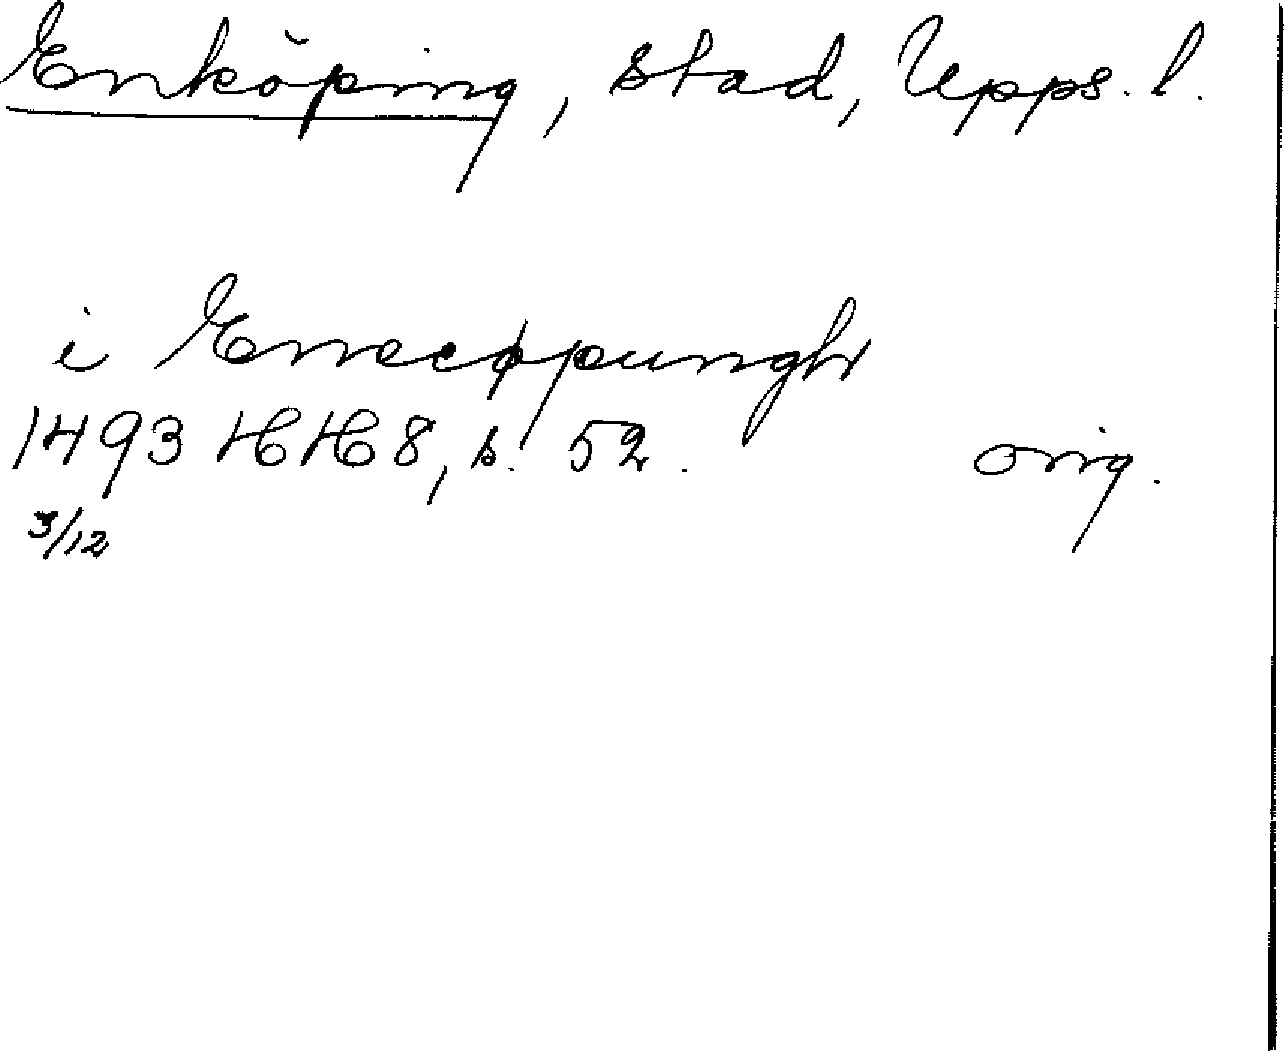 Enköping, stad, Upps. l.
i Enecøpungh
1493 HH 8, s. 52. orig.
3/12